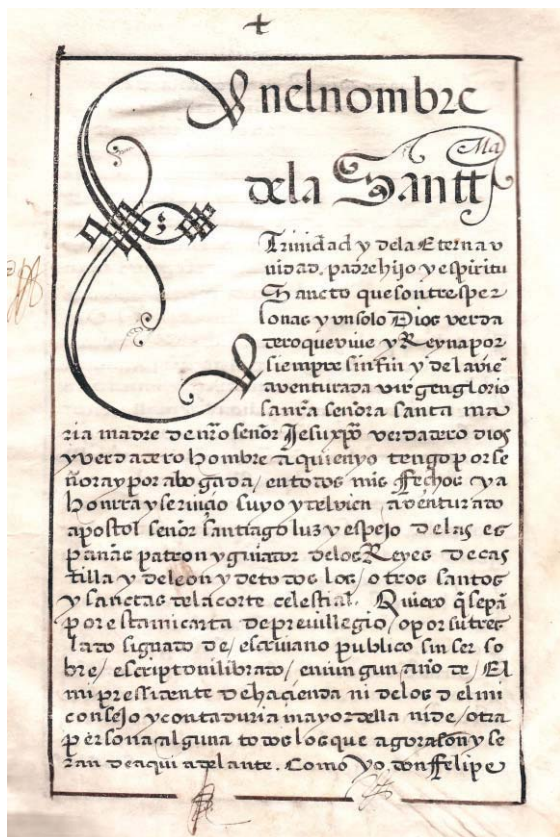 ✝
En el nombre
de la Santt Ma
Trinidad y de la Eterna v
nidad. padre hijo y espiritu
Sancto que son tres per
sonas y vn solo Dios verda
dero que viue y Reyna por
siempre sin fin y de la vie
aventurada virgen glorio
sa nrã señora santa ma
ria madre de nrõ señor Jesuxpõ verdadero dios
y verdadero hombre a quien yo tengo por se
ñora y por abogada / en todos mis ffechos y a
honrra y seruiçio suyo y del vien aventurado
apostol señor santiago luz y espejo de las es
pañas patron y guiador de los Reyes de cas
tilla y de leon y de todos los / otros santos
y sanctas de la corte celestial. Quiero q̃ sepã
por esta mi carta de preuillegio / o por su tres
lado signado de / escriuano publico sin ser so
bre / escripto ni librado / en ningun año de / El
mi pressidente de hacienda ni de los del mi
consejo y contaduria mayor della ni de / otra
persona alguna todos los que agora son y se
ran de aqui adelante. Como yo. don ffelipe